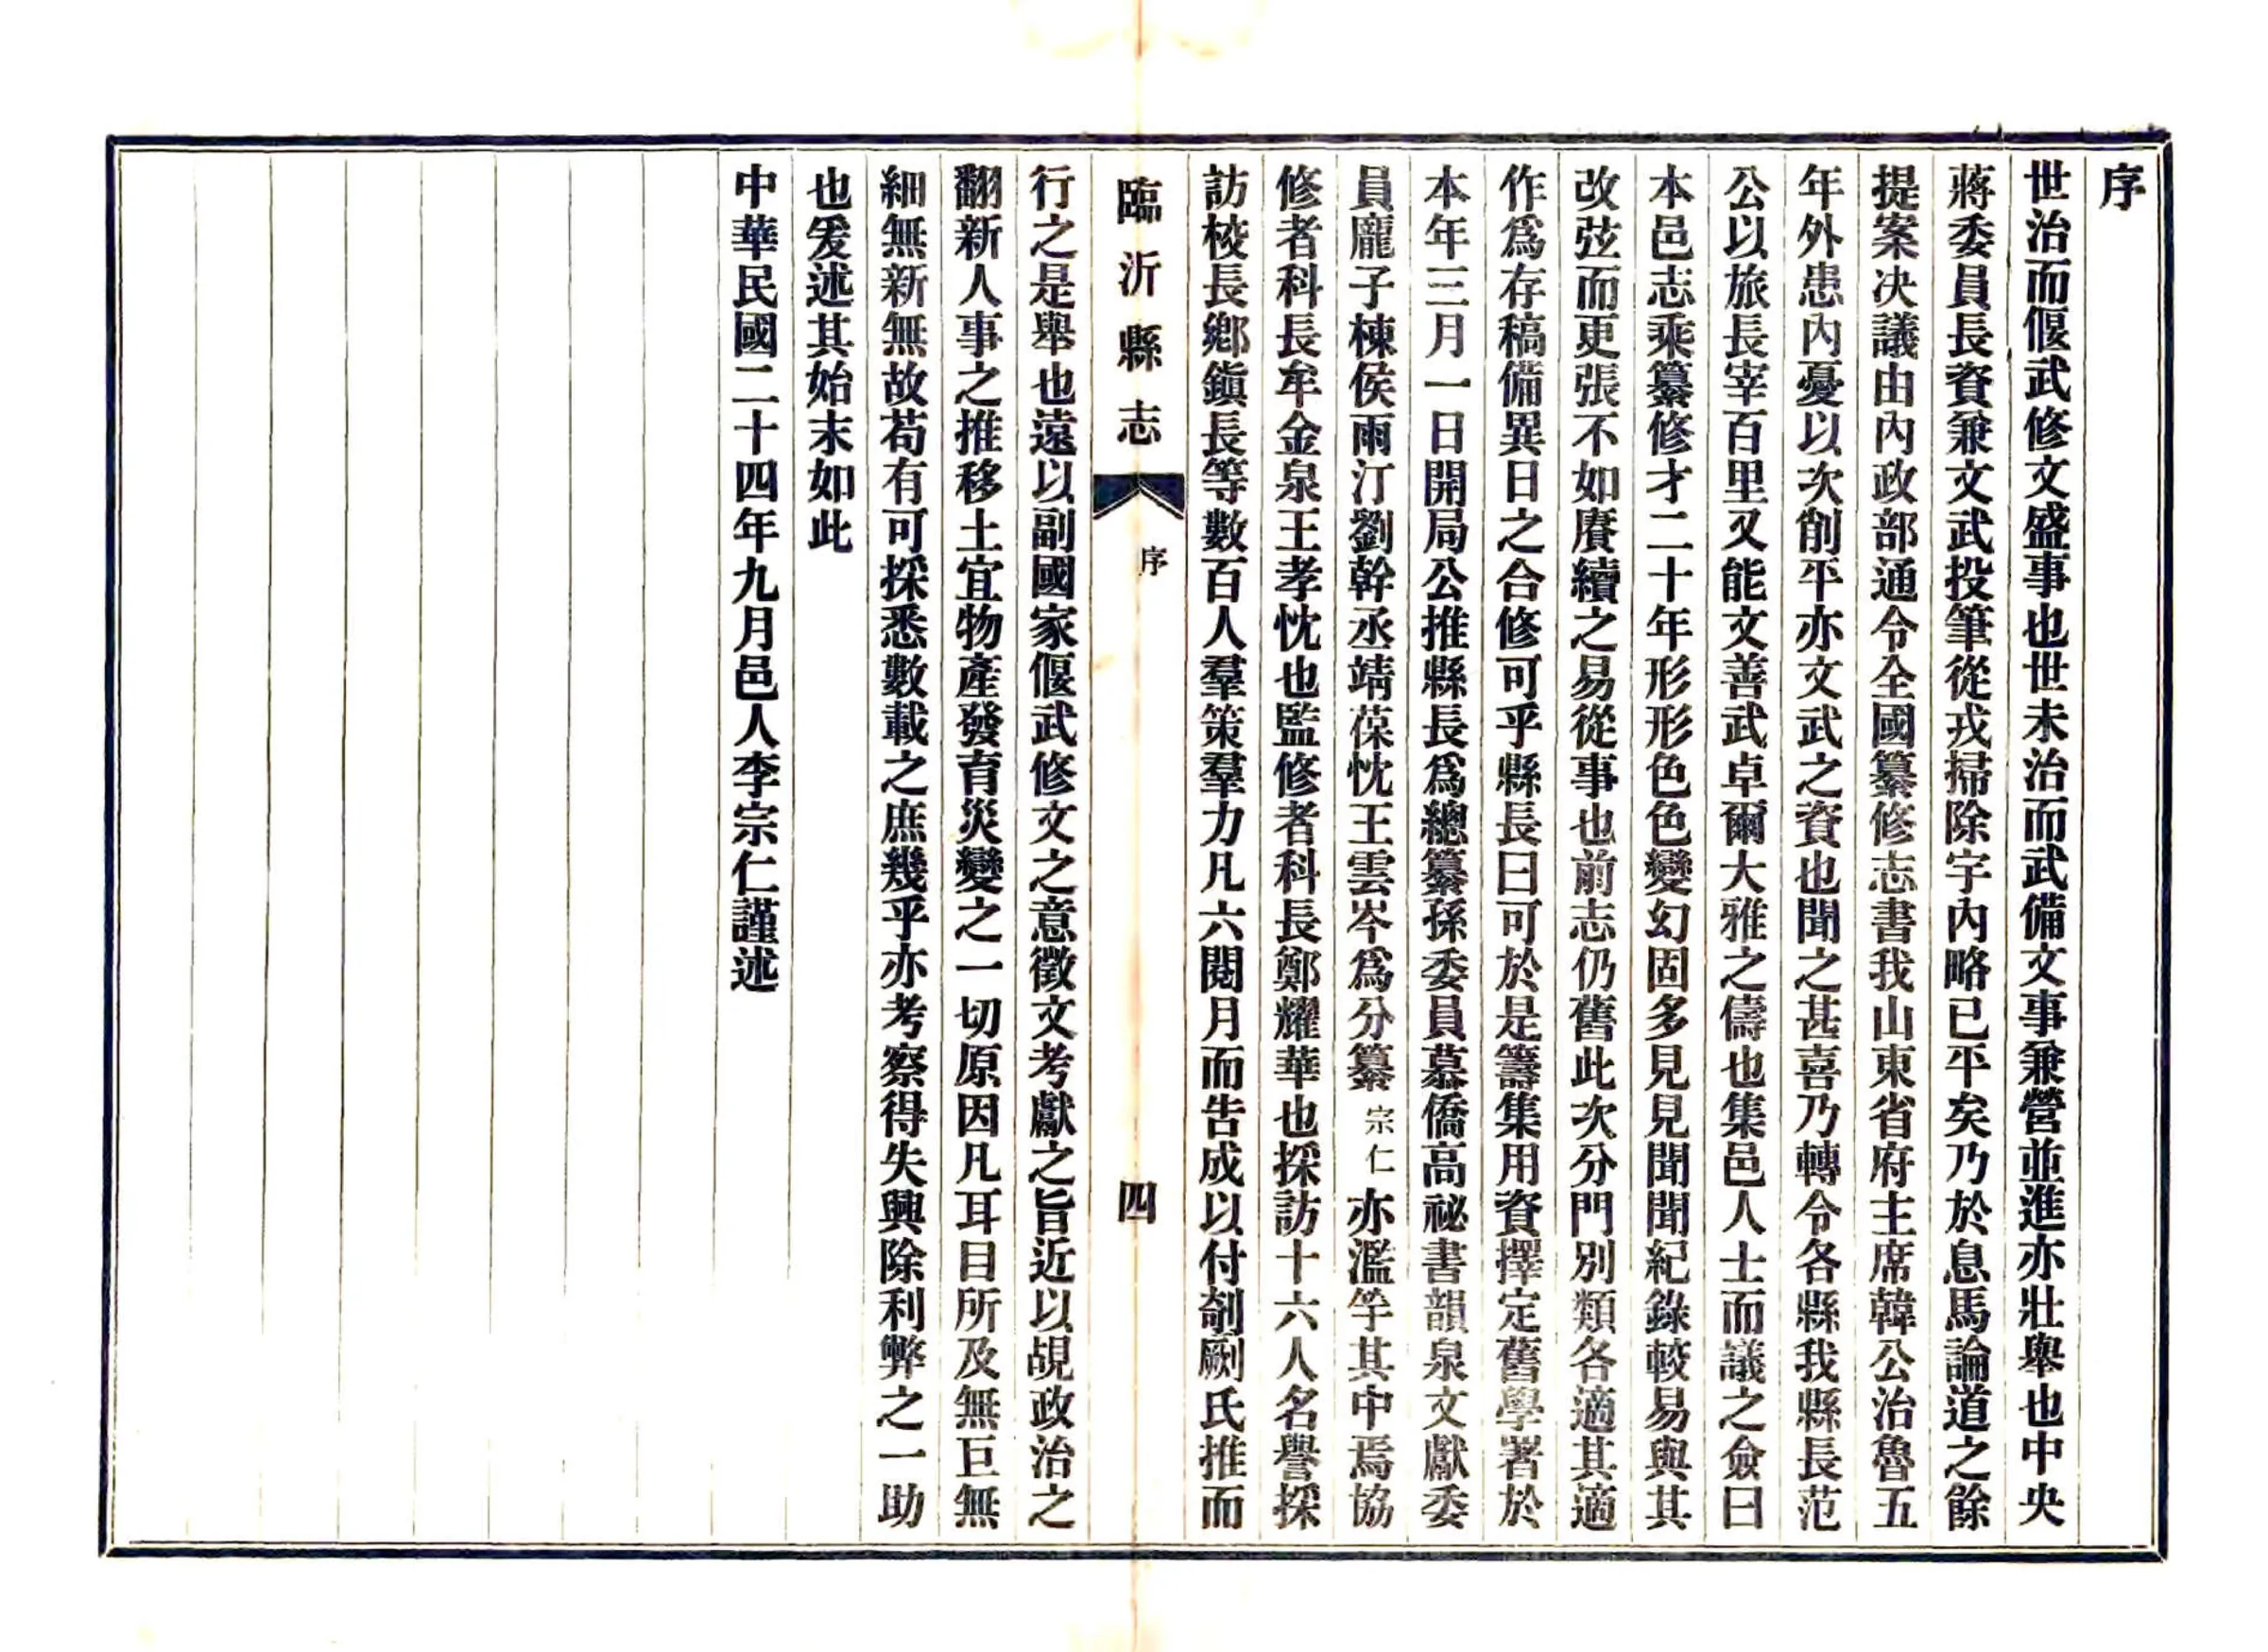 序
世治而偃武修文盛事也世未治而武備文事兼營並進亦壯舉也中央
蔣委員長資兼文武投筆從戎掃除宇內略已平矣乃於息馬論道之餘
提案决議由內政部通令全國纂修志書我山東省府主席韓公治魯五
年外患內憂以次削平亦文武之資也聞之甚喜乃轉令各縣我縣長范
公以旅長宰百里又能文善武卓爾大雅之儔也集邑人士而議之僉曰
本邑志乘纂修才二十年形形色色變幻固多見見聞聞紀錄較易與其
改弦而更張不如賡續之易從事也前志仍舊此次分門別類各適其適
作爲存稿備異日之合修可乎縣長曰可於是籌集用資擇定舊學署於
本年三月一日開局公推縣長爲總纂孫委員慕僑高祕書韻泉文獻委
員龐子棟侯雨汀劉幹丞靖葆忱王雲岑爲分纂宗仁亦濫竽其中焉協
修者科長牟金泉王孝忱也監修者科長鄭耀華也採訪十六人名譽採
訪校長鄉鎭長等數百人羣策羣力凡六閱月而告成以付剞劂氏推而
臨沂縣志 序 四
行之是舉也遠以副國家偃武修文之意徵文考獻之旨近以覘政治之
翻新人事之推移土宜物產發育災變之一切原因凡耳目所及無巨無
細無新無故苟有可採悉數載之庶幾乎亦考察得失興除利弊之一助
也爰述其始末如此
中華民國二十四年九月邑人李宗仁謹述